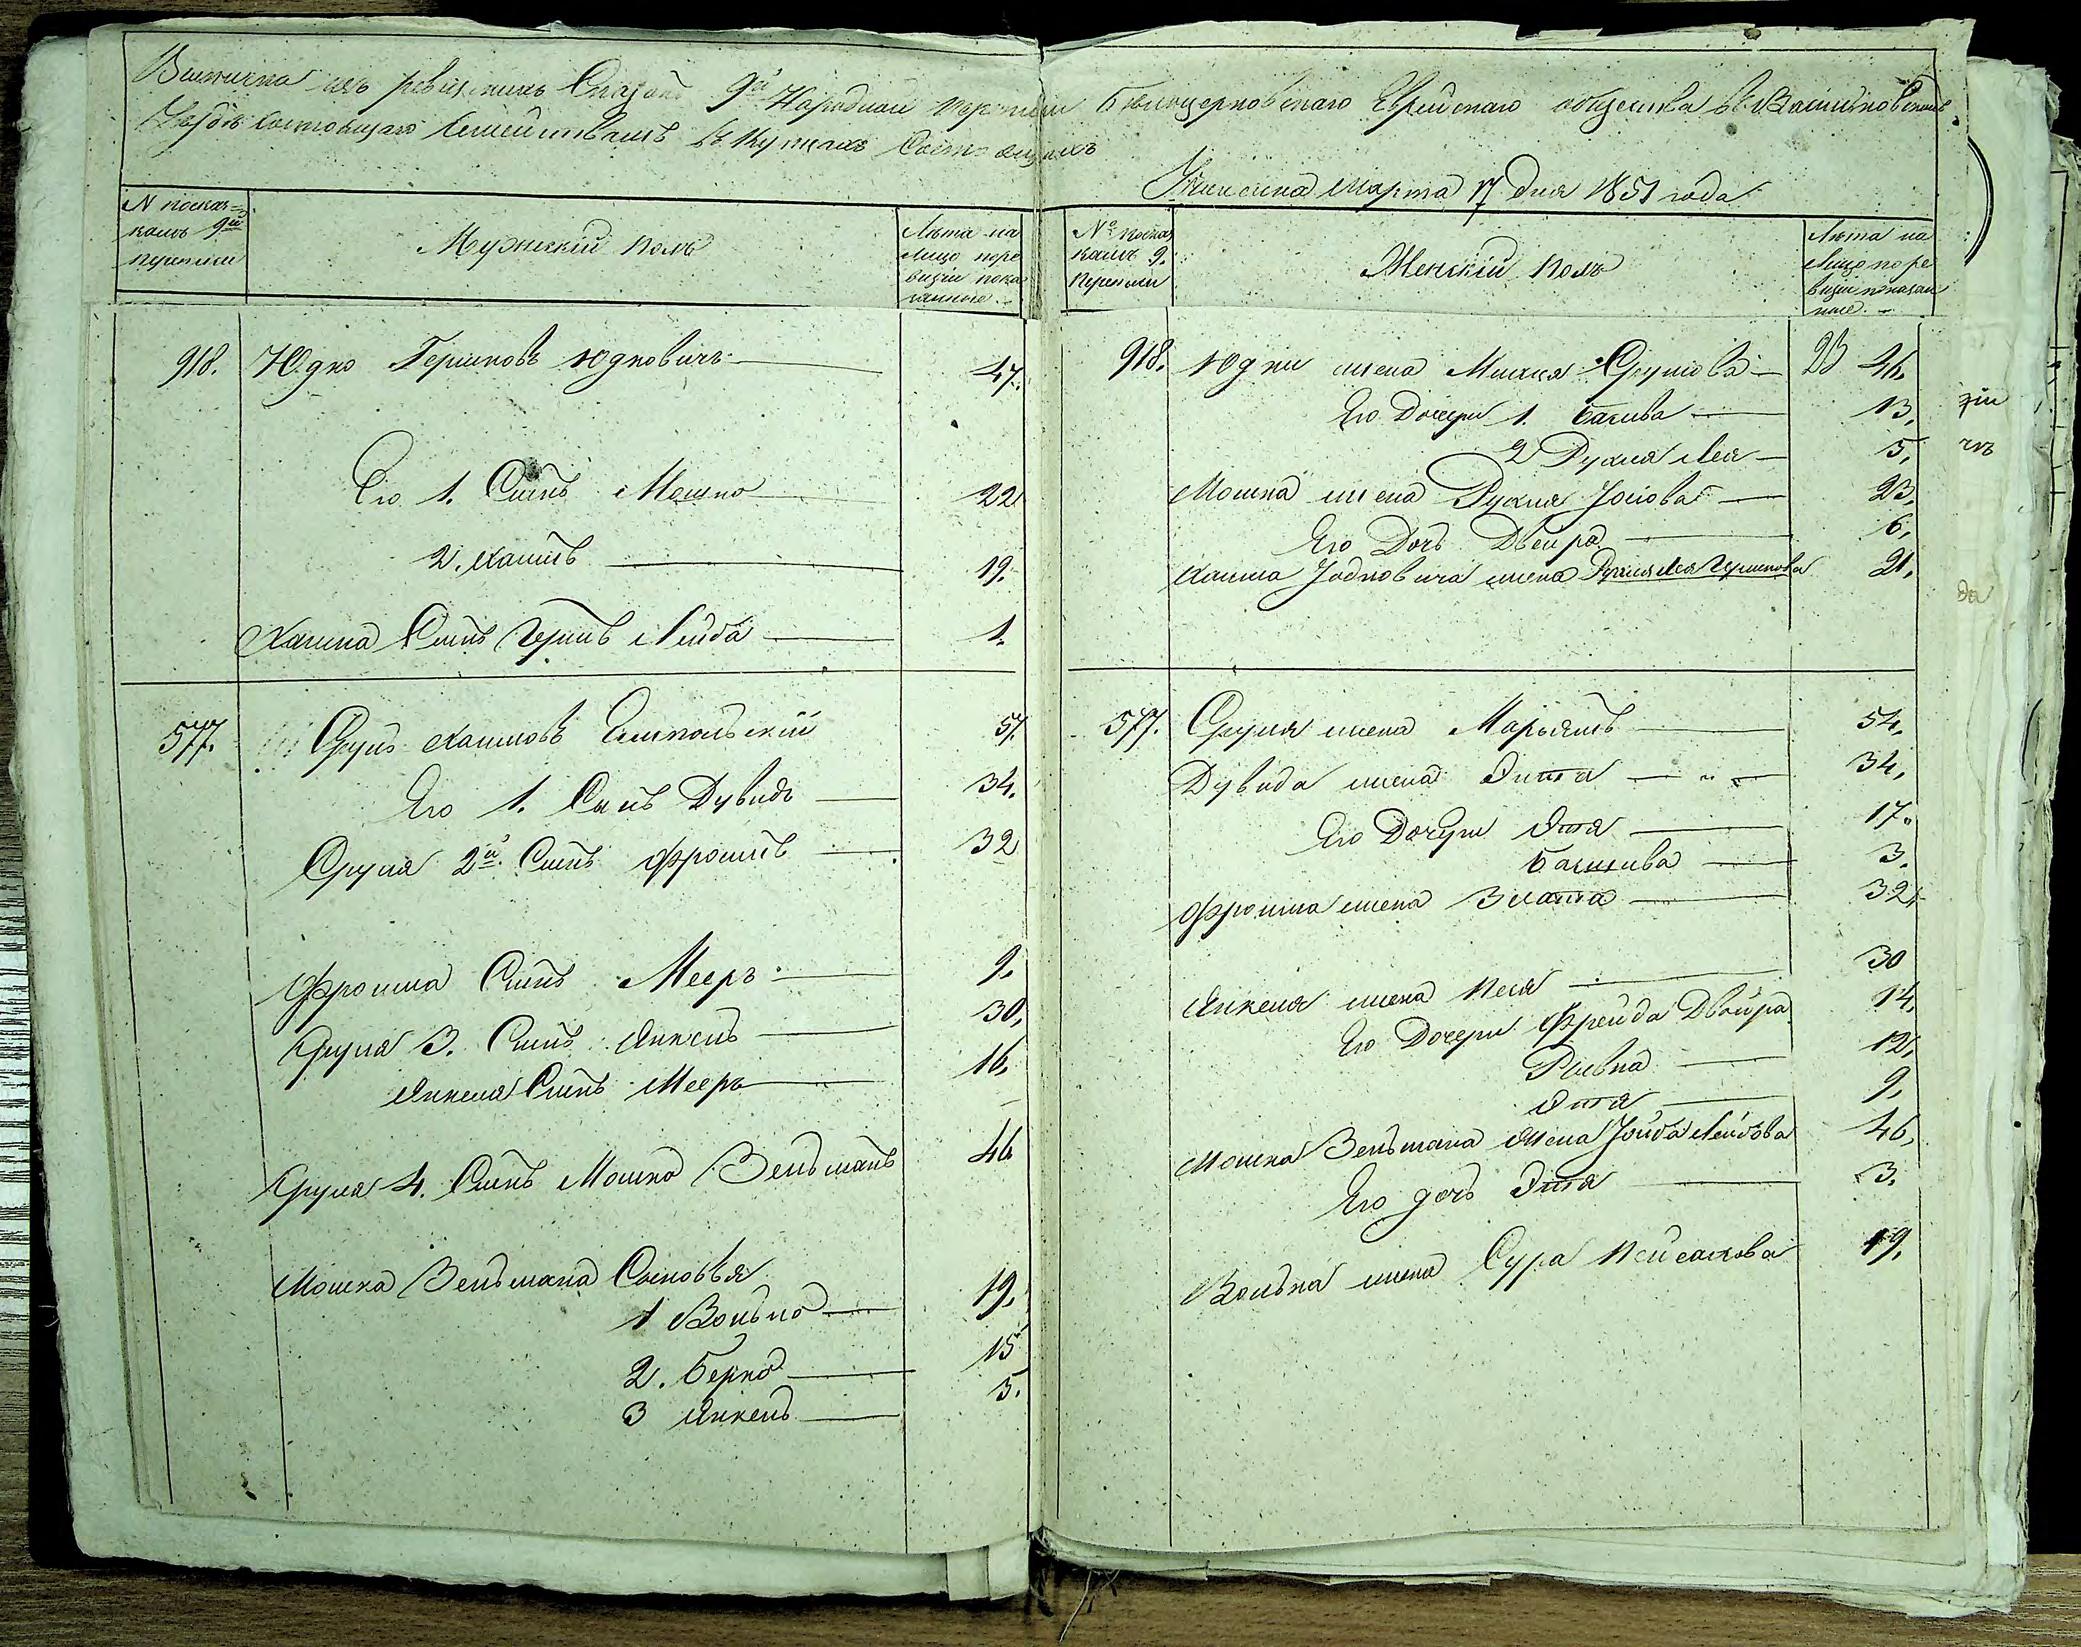 Выписка изъ ревизскихъ Сказокъ 9й Народной переписи Бѣлоцерковскаго Еврейскаго общества въ Васильковскомъ
Уѣздѣ состоящаго Семействамъ въ состоящихъ
Учинена марта 17 дня 1851 года
N по сказ=
камъ 9й
переписи
Мужескій полъ
Лѣта на
Лицо поре
визіи пока
занные
918. Юдко Гершковъ Юдковичъ 47.
Его 1. Сынъ Мошко 22
2. Хаимъ 19.
Хаима Сынъ Гершъ Лейба 1.
577. Сруль Хаимовъ 57.
Его 1. Сынъ Дувидъ 34.
Сруля 2й Сынъ Фроимъ 32
Фроима Сынъ Мееръ 9.
Сруля 3. Сынъ Янкель 30.
Янкеля Сынъ Мееръ 16.
Сруля 4. Сынъ Мошко Зельманъ 46
Мошка Зельмана Сыновья
1 Волько 19.
2. Берко 15
3 Янкель 5.
№ по сказ
камъ 9.
Переписи
Женскій полъ
Лѣта на
Лицо поре
визіи показан
ные.
918. Юдки жена Срулова 46.
Его Дочери 1. Басива 13.
2 Рухля Лея 5.
Мошка жена Рухля Іосіова 23.
Его Дочь Двейра 6.
Хаима Юдковича жена Рухля Лея Гершкова 21.
577. Сруля жена Марьямъ 54.
Дувида жена 34.
Его Дочери Этя 17.
3.
Фроима жена Злата 32.
Янкеля жена Песя 30
Его Дочери Фрейда Двойра 14.
Ривка 12.
Этя 9.
Мошка Зельмана жена Лейбова 46.
Его дочь Этя 3.
Волька жена Сура Пейсахова 19.
зіи
чъ
да